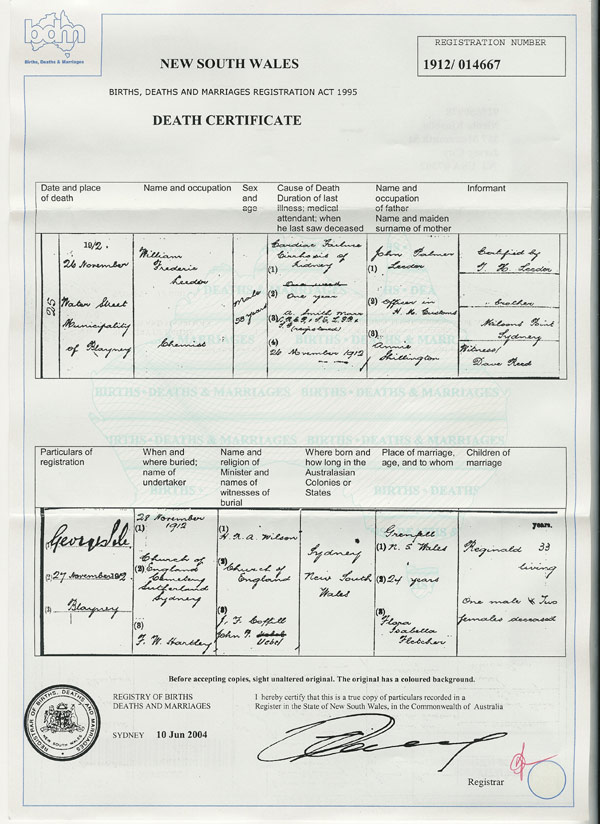 bdm
Births, Deaths & Marriages
REGISTRATION NUMBER
1912/ 014667
NEW SOUTH WALES
BIRTHS, DEATHS AND MARRIAGES REGISTRATION ACT 1995
DEATH CERTIFICATE
Date and place
of death
Name and occupation
Sex
and
age
Cause of Death
Duration of last
illness; medical
attendant; when
he last saw deceased
Name and
occupation
of father
Name and maiden
surname of mother
Informant
25
1912.
26 November
Water Street
Municipality
of Blayney
William
Frederic
Leedor
Chemist
Male
58 years
Cardiac Failure
Cirrhosis of
(1) Kidney
One week
(2) One year
(3) A. Smith
(registered)
(4)
26 November 1912
John Palmer
(1) Leedor
(2) Officer in
H. M. Customs
(3)
Annie
Skillington
Certified by
T. H. Leedor
brother
Watsons Point
Sydney
Witness/
Dave Reed
Particulars of
registration
When and
where buried;
name of
undertaker
Name and
religion of
Minister and
names of
witnesses of
burial
Where born and
how long in the
Australasian
Colonies or
States
Place of marriage,
age, and to whom
Children of
marriage
27 November 1912
Blayney
28 November
(1) 1912
Church of
(2) England
Cemetery
Sutherland
Sydney
(3)
F. W. Hartley
(1)
H. R. A. Wilson
(2) Church of
England
J. F. Coffill
(3)
John P.
Sydney
New South
Wales
Grenfell
(1) N. S Wales
(2) 24 years
(3)
Flora
Isabella
Fletcher
years.
Reginald 33
living
One male & Two
females deceased
Before accepting copies, sight unaltered original. The original has a coloured background.
REGISTRY OF BIRTHS
DEATHS AND MARRIAGES
SYDNEY 10 Jun 2004
I hereby certify that this is a true copy of particulars recorded in a
Register in the State of New South Wales, in the Commonwealth of Australia
Registrar
REGISTRAR OF BIRTHS, DEATHS AND MARRIAGES
NEW SOUTH WALES
BIRTHS · DEATHS & MARRIAGES